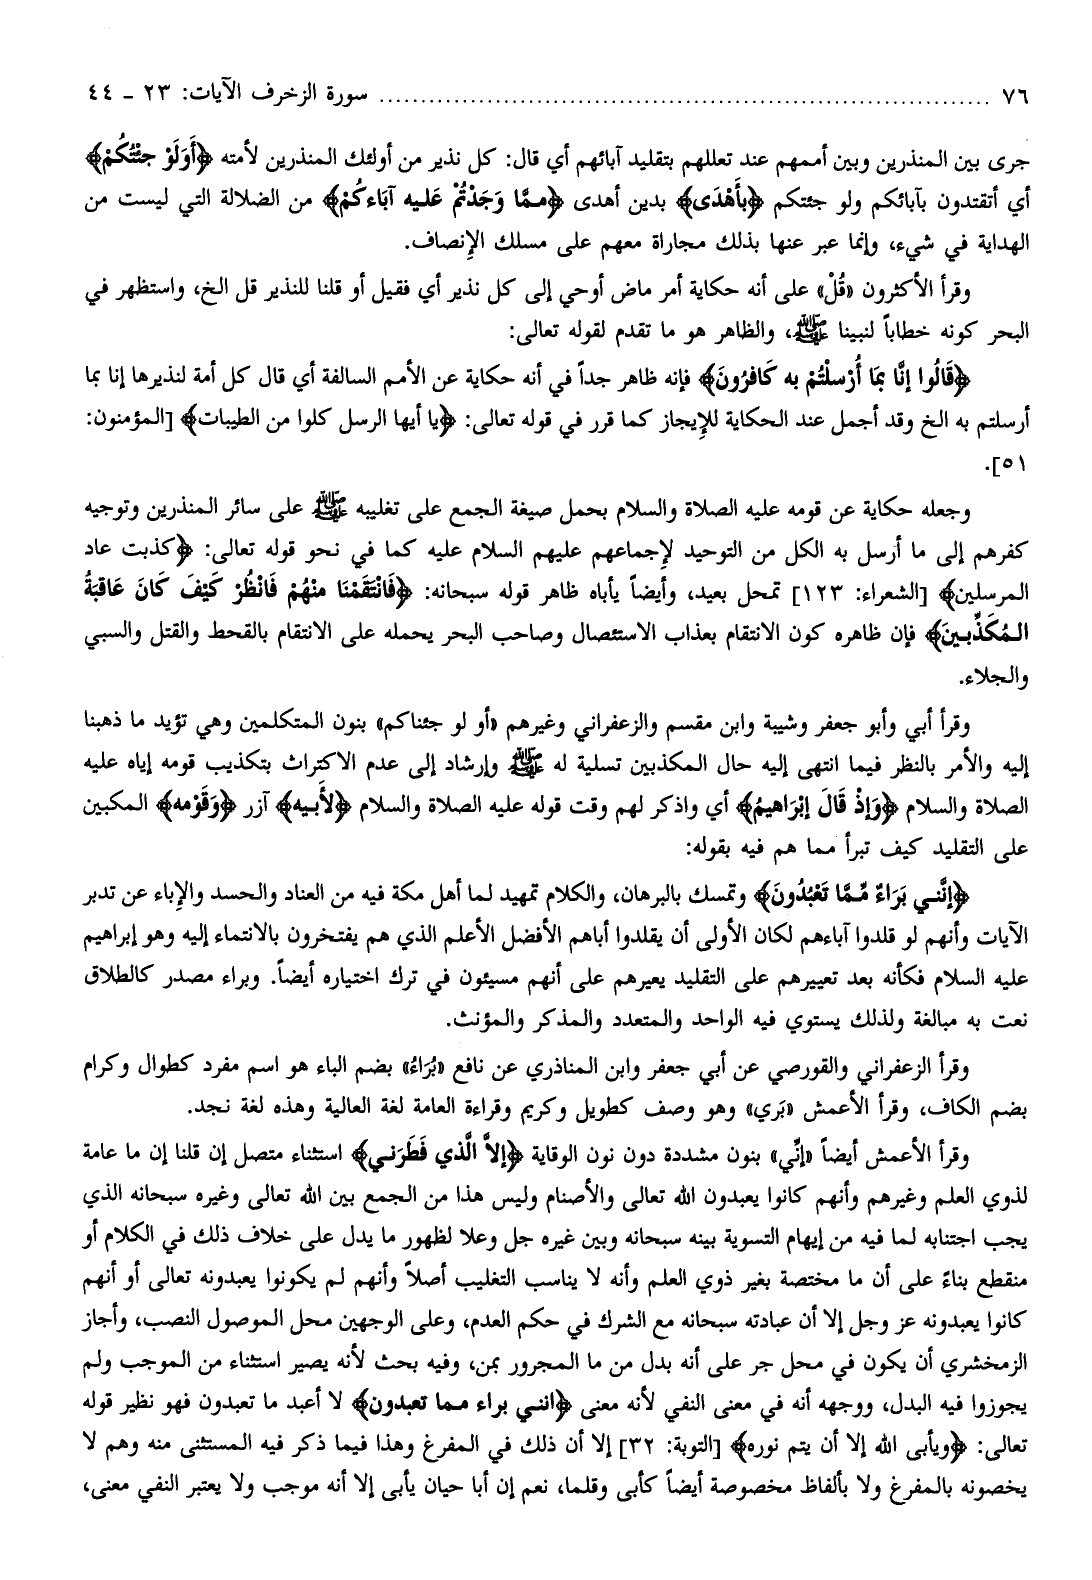 ٧٦ ........................................ سورة الزخرف الآيات: ٢٣ ـ ٤٤
جرى بين المنذرين وبين أممهم عند تعللهم بتقليد آبائهم أي قال: كل نذير من أولئك المنذرين لأمته ﴿أَوَلَوْ جِئْتُكُمْ﴾
أي أتقتدون بآبائكم ولو جئتكم ﴿بِأَهْدَى﴾ بدين أهدى ﴿مـمَّا وَجَدْتُمْ عَلـيه آبَاءكُمْ﴾ من الضلالة التي ليست من
الهداية في شيء، وإنما عبر عنها بذلك مجاراة معهم على مسلك الإِنصاف.
وقرأ الأكثرون «قُلْ» على أنه حكاية أمر ماض أوحي إلى كل نذير أي فقيل أو قلنا للنذير قل الخ، واستظهر في
البحر كونه خطاباً لنبينا ﷺ، والظاهر هو ما تقدم لقوله تعالى:
﴿قَالُوا إنَّا بمَا أُرْسلْتُمْ به كَافرُونَ﴾ فإنه ظاهر جداً في أنه حكاية عن الأمم السالفة أي قال كل أمة لنذيرها إنا بما
أرسلتم به الخ وقد أجمل عند الحكاية للإِيجاز كما قرر في قوله تعالى: ﴿يا أيها الرسل كلوا من الطيبات﴾ [المؤمنون:
٥١].
وجعله حكاية عن قومه عليه الصلاة والسلام بحمل صيغة الجمع على تغليبه ﷺ على سائر المنذرين وتوجيه
كفرهم إلى ما أرسل به الكل من التوحيد لإِجماعهم عليهم السلام عليه كما في نحو قوله تعالى: ﴿كذبت عاد
المرسلين﴾ [الشعراء: ١٢٣] تمحل بعيد، وأيضاً يأباه ظاهر قوله سبحانه: ﴿فَانْتَقَمْنَا منْهُمْ فَانْظُرْ كَيْفَ كَانَ عَاقبَةُ
الـمُكَذِّبـينَ﴾ فإن ظاهره كون الانتقام بعذاب الاستئصال وصاحب البحر يحمله على الانتقام بالقحط والقتل والسبي
والجلاء.
وقرأ أبي وأبو جعفر وشيبة وابن مقسم والزعفراني وغيرهم «أو لو جئناكم» بنون المتكلمين وهي تؤيد ما ذهبنا
إليه والأمر بالنظر فيما انتهى إليه حال المكذبين تسلية له ﷺ وإرشاد إلى عدم الاكتراث بتكذيب قومه إياه عليه
الصلاة والسلام ﴿وَإذْ قَالَ إبْرَاهيمُ﴾ أي واذكر لهم وقت قوله عليه الصلاة والسلام ﴿لأَبيه﴾ آزر ﴿وَقَوْمه﴾ المكبين
على التقليد كيف تبرأ مما هم فيه بقوله:
﴿إنَّنـي بَرَاءٌ مـمَّا تَعْبُدُونَ﴾ وتمسك بالبرهان، والكلام تمهيد لما أهل مكة فيه من العناد والحسد والإِباء عن تدبر
الآيات وأنهم لو قلدوا آباءهم لكان الأولى أن يقلدوا أباهم الأفضل الأعلم الذي هم يفتخرون بالانتماء إليه وهو إبراهيم
عليه السلام فكأنه بعد تعييرهم على التقليد يعيرهم على أنهم مسيئون في ترك اختياره أيضاً. وبراء مصدر كالطلاق
نعت به مبالغة ولذلك يستوي فيه الواحد والمتعدد والمذكر والمؤنث.
وقرأ الزعفراني والقورصي عن أبي جعفر وابن المناذري عن نافع «بُرَاءُ» بضم الباء هو اسم مفرد كطوال وكرام
بضم الكاف، وقرأ الأعمش «بَري» وهو وصف كطويل وكريم وقراءة العامة لغة العالية وهذه لغة نجد.
وقرأ الأعمش أيضاً «إنِّي» بنون مشددة دون نون الوقاية ﴿إلاَّ الَّذي فَطَرَنـي﴾ استثناء متصل إن قلنا إن ما عامة
لذوي العلم وغيرهم وأنهم كانوا يعبدون الله تعالى والأصنام وليس هذا من الجمع بين الله تعالى وغيره سبحانه الذي
يجب اجتنابه لما فيه من إيهام التسوية بينه سبحانه وبين غيره جل وعلا لظهور ما يدل على خلاف ذلك في الكلام أو
منقطع بناءً على أن ما مختصة بغير ذوي العلم وأنه لا يناسب التغليب أصلاً وأنهم لم يكونوا يعبدونه تعالى أو أنهم
كانوا يعبدونه عز وجل إلا أن عبادته سبحانه مع الشرك في حكم العدم، وعلى الوجهين محل الموصول النصب، وأجاز
الزمخشري أن يكون في محل جر على أنه بدل من ما المجرور بمن، وفيه بحث لأنه يصير استثناء من الموجب ولم
يجوزوا فيه البدل، ووجهه أنه في معنى النفي لأنه معنى ﴿انني براء مـما تعبدون﴾ لا أعبد ما تعبدون فهو نظير قوله
تعالى: ﴿ويأبى الله إلا أن يتم نوره﴾ [التوبة: ٣٢] إلا أن ذلك في المفرغ وهذا فيما ذكر فيه المستثنى منه وهم لا
يخصونه بالمفرغ ولا بألفاظ مخصوصة أيضاً كأبى وقلما، نعم إن أبا حيان يأبى إلا أنه موجب ولا يعتبر النفي معنى،